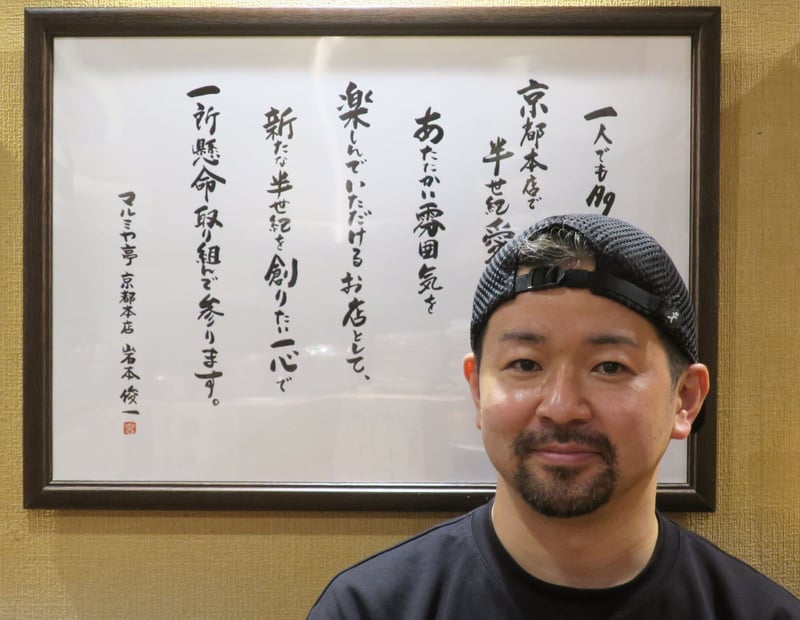 一人でも多
京都本店で
半世紀愛
あたたかい雰囲気を
楽しんでいただけるお店として、
新たな半世紀を創りたい一心で
一所懸命取り組んで参ります。
マルミヤ亭 京都本店 岩本 俊一